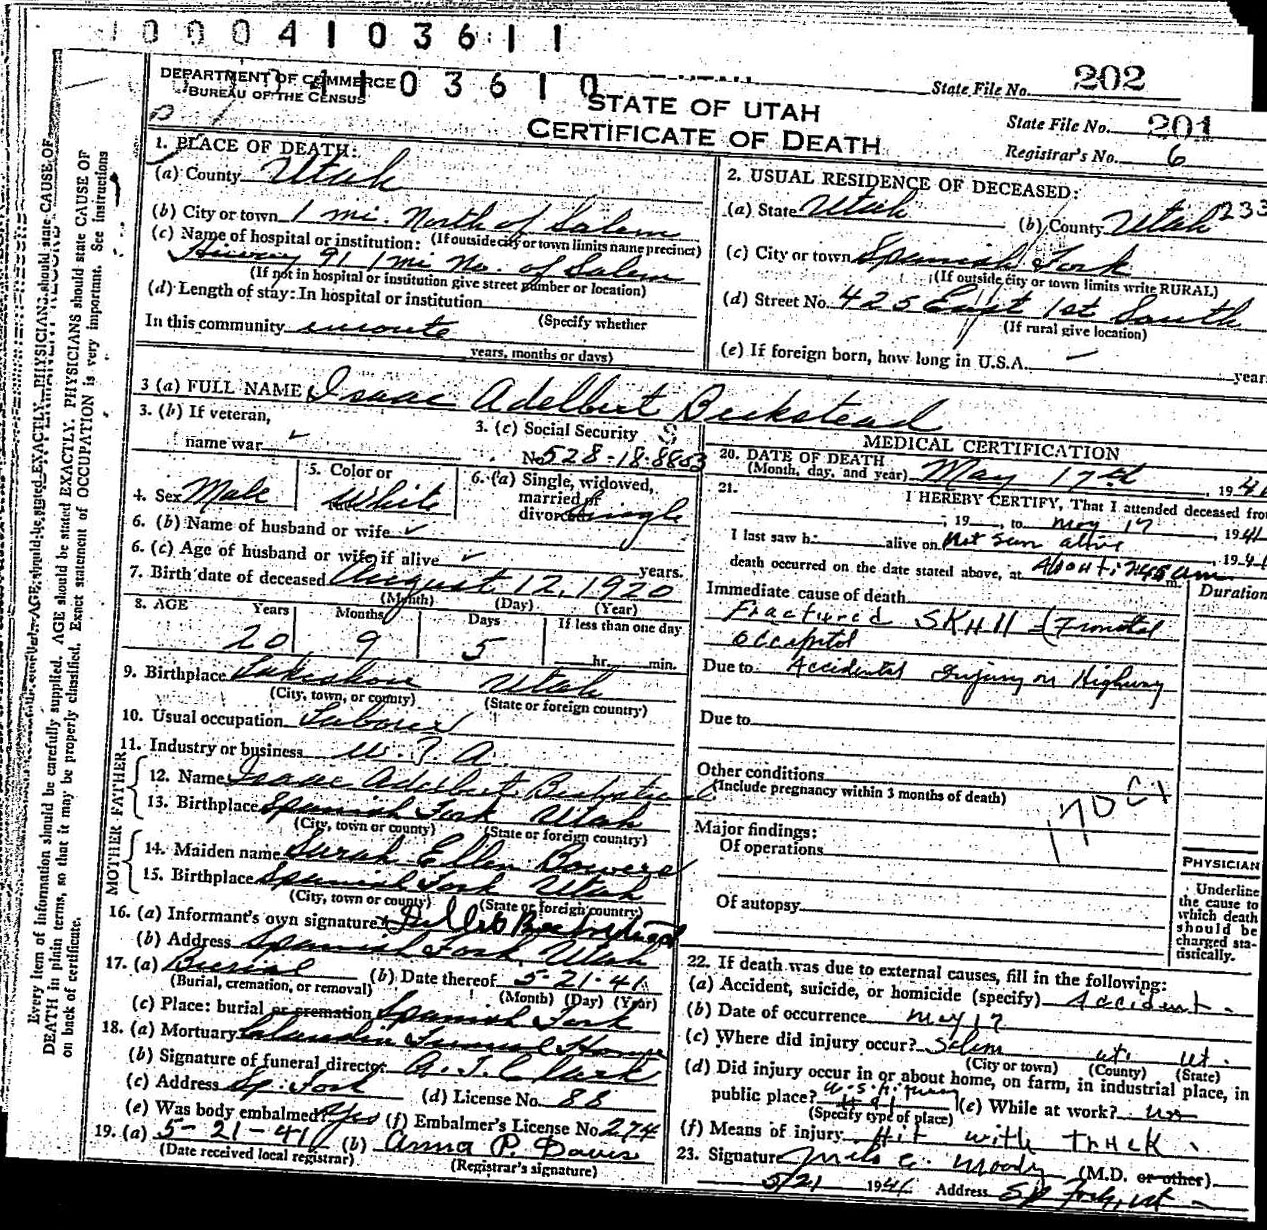 0004103611
DEPARTMENT OF COMMERCE
BUREAU OF THE CENSUS
1103610
State File No. 202
STATE OF UTAH
CERTIFICATE OF DEATH
State File No. 201
Registrar's No. 6
1. PLACE OF DEATH:
(a) County Utah
(b) City or town 1 mi. North of Salem
(If outside city or town limits name precinct)
(c) Name of hospital or institution:
Hiway 91 1 mi No. of Salem
(If not in hospital or institution give street number or location)
(d) Length of stay: In hospital or institution
(Specify whether
In this community enroute
years, months or days)
2. USUAL RESIDENCE OF DECEASED:
(a) State Utah (b) County Utah 233
(c) City or town Spanish Fork
(If outside city or town limits write RURAL)
(d) Street No. 425 East 1st South
(If rural give location)
(e) If foreign born, how long in U.S.A. year
3 (a) FULL NAME Isaac Adelbert Beckstead
3. (b) If veteran,
name war
3. (c) Social Security
No. 528-18-8803
4. Sex Male
5. Color or
White
6. (a) Single, widowed,
married or
divorced Single
6. (b) Name of husband or wife
6. (c) Age of husband or wife if alive years.
7. Birth date of deceased August 12, 1920
(Month) (Day) (Year)
8. AGE Years Months Days If less than one day
20 9 5 hr. min.
9. Birthplace Lakeshore Utah
(City, town, or county) (State or foreign country)
10. Usual occupation Laborer
11. Industry or business W.P.A
FATHER
12. Name Isaac Adelbert Beckstead
13. Birthplace Spanish Fork Utah
(City, town or county) (State or foreign country)
MOTHER
14. Maiden name Sarah Ellen Bowers
15. Birthplace Spanish Fork Utah
(City, town or county) (State or foreign country)
16. (a) Informant's own signature Beckstead
(b) Address Spanish Fork, Utah
17. (a) Burial (b) Date thereof 5-21-41
(Burial, cremation, or removal) (Month) (Day) (Year)
(c) Place: burial or cremation Spanish Fork
18. (a) Mortuary Funeral Home
(b) Signature of funeral director
(c) Address Sp. Fork (d) License No. 88
(e) Was body embalmed? Yes (f) Embalmer's License No. 274
19. (a) 5-21-41 (b) Anna P. Davis
(Date received local registrar) (Registrar's signature)
MEDICAL CERTIFICATION
20. DATE OF DEATH
(Month, day, and year) May 17th, 194
21. I HEREBY CERTIFY, That I attended deceased fro
, 19 , to May 17 1941
I last saw h alive on Not seen alive 194
death occurred on the date stated above, at About 2:45 am m.
Immediate cause of death Duration
Fractured Skull (Frontal
occipital
Due to Accidental Injury on Highway
Due to
Other conditions
(Include pregnancy within 3 months of death)
170 C1
Major findings:
Of operations
Of autopsy
PHYSICIAN
Underline
the cause to
which death
should be
charged sta-
tistically.
22. If death was due to external causes, fill in the following:
(a) Accident, suicide, or homicide (specify) Accident
(b) Date of occurrence May 17
(c) Where did injury occur? Salem ut. ut.
(City or town) (County) (State)
(d) Did injury occur in or about home, on farm, in industrial place, in
public place?
(Specify type of place) (e) While at work?
(f) Means of injury Hit with Truck
23. Signature Moody (M.D. or other)
5/21 1941 Address Sp Fork, ut
Every item of information should be carefully supplied. AGE should be stated EXACTLY. PHYSICIANS should state CAUSE OF
DEATH in plain terms, so that it may be properly classified. Exact statement of OCCUPATION is very important. See instructions
on back of certificate.